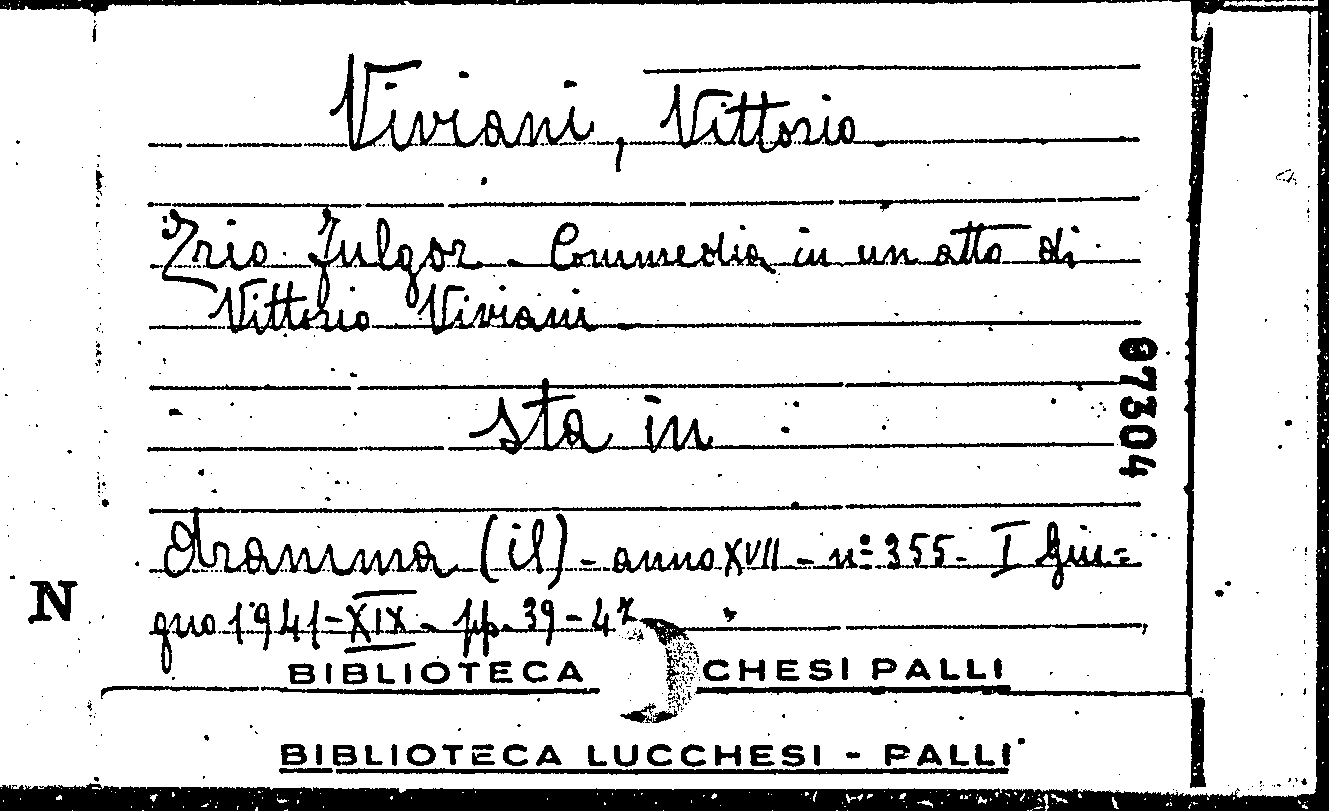 Viviani, Vittorio
Zrio Fulgor - Commedia in un atto di
Vittorio Viviani -
sta in :
dramma (il) - anno XVII - nº 355 - I Giu=
gno 1941 - XIX - pp. 39 - 47
07304
N
BIBLIOTECA CHESI PALLI
BIBLIOTECA LUCCHESI - PALLI